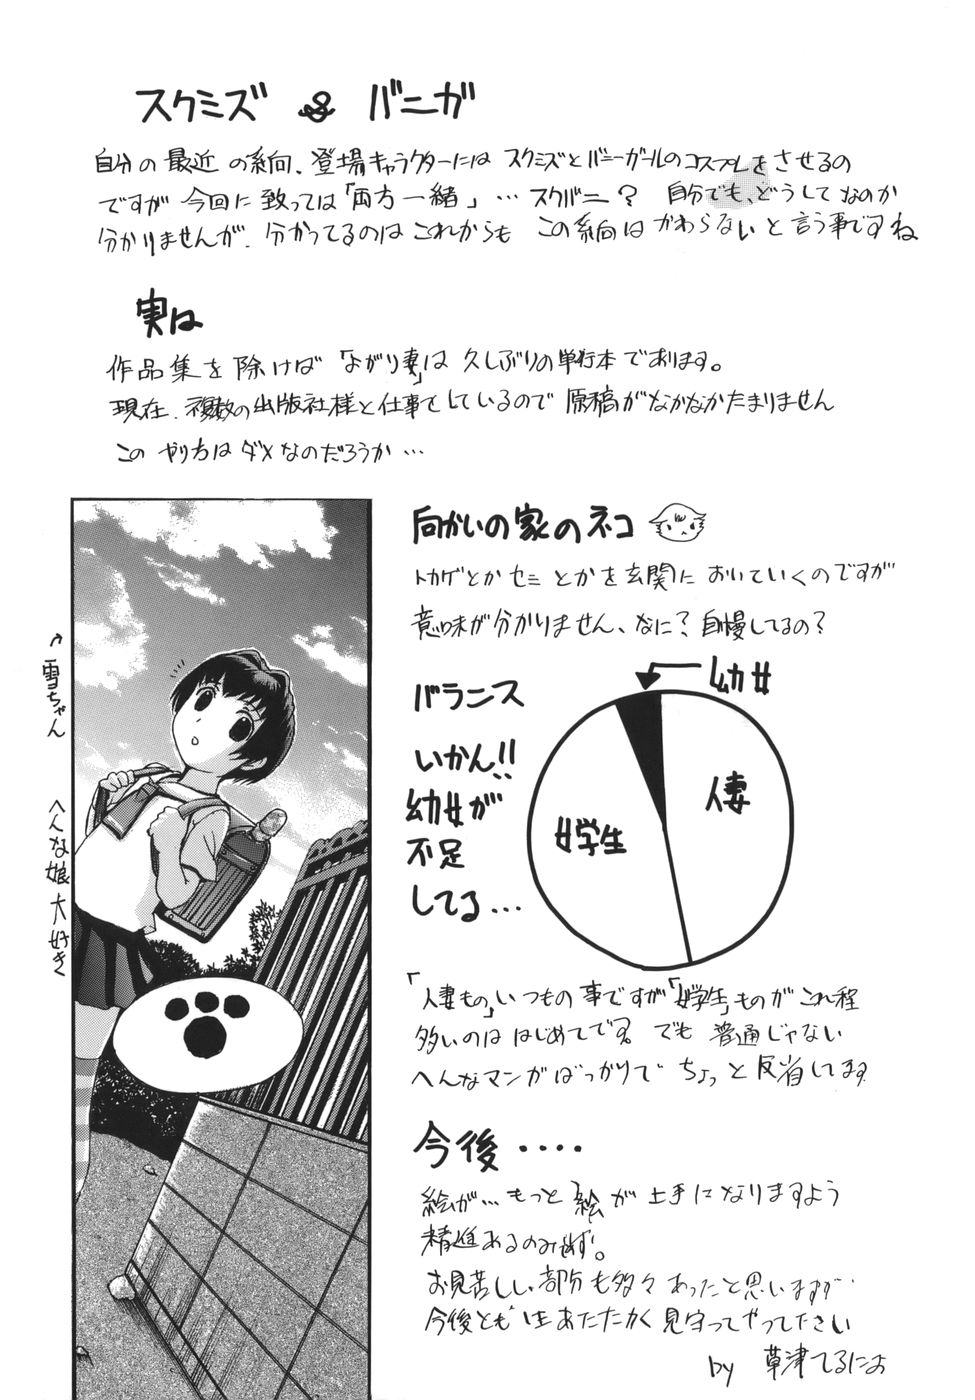 スクミズ & バニガ
自分の最近の系向、登場キャラクターにはスクミズとバニーガールのコスプレをさせるの
ですが今回に致っては「両方一緒」…スクバニ？ 自分でも、どうしてなのか
分かりませんが、分かってるのはこれからもこの系向はかわらないと言う事ですね
実は
作品集を除けば「ながり妻」は久しぶりの単行本であります。
現在、複数の出版社様と仕事をしているので原稿がなかなかたまりません
このやり方はダメなのだろうか…
向かいの家のネコ
トカゲとかセミとかを玄関においていくのですが
意味が分かりません、なに？自慢してるの？
雪ちゃん
へんな娘大好き
バランス
いかん!!
幼女が
不足
してる…
幼女
人妻
女学生
「人妻もの」いつもの事ですが「女学生」ものがこれ程
多いのははじめてです。でも普通じゃない
へんなマンガばっかりでちょっと反省してます
今後‥‥
絵が…もっと絵が上手になりますよう
精進あるのみです。
お見苦しい部分も多々あったと思いますが
今後ともあたたかく見守ってやって下さい
by 草津てるにょ